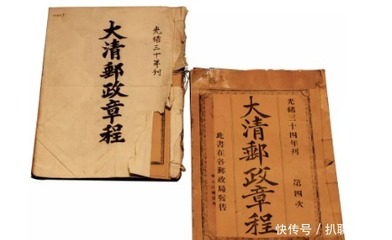 光緒三十年刊
大清郵政章程
光緒三十四年刊
第四次
大清郵政章程
此書在各郵政局發售
快传号/扒聊